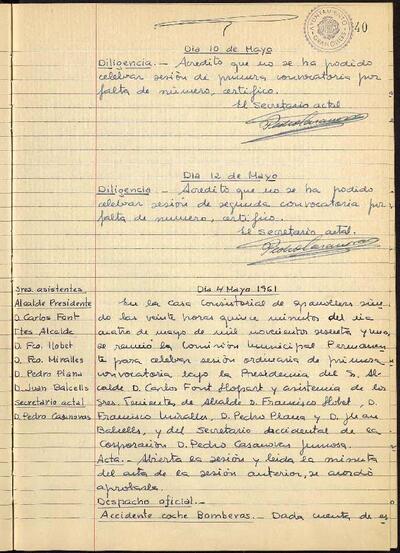 40
AYUNTAMIENTO GRANOLLERS
Día 10 de Mayo
Diligencia.- Acredito que no se ha podido
celebrar sesión de primera convocatoria por
falta de número, certifico.
El secretario actal
Pedro Casanovas
DIA 12 de Mayo
Diligencia.- Acredito que no se ha podido
celebrar sesión de segunda convocatoria por
falta de número, certifico.
El secretario actal.
Pedro Casanovas
Sres. asistentes
Alcalde Presidente
D. Carlos Font
Ttes Alcalde
D. Fco. Llobet
D. Fco. Miralles
D. Pedro Plana
D. Juan Balcells
secretario actal
D. Pedro Casanovas
Día 4 Mayo 1961
En la Casa Consistorial de Granollers sien-
do las veinte horas quince minutos del día
cuatro de mayo de mil novecientos sesenta y uno,
se reunió la Comisión Municipal Permanen-
te para celebrar sesión ordinaria de primera
convocatoria bajo la Presidencia del S. Al-
calde D. Carlos Font Llopart y asistencia de los
Sres. Tenientes de Alcalde D. Francisco Llobet, D.
Francisco Miralles, D. Pedro Plana y D. Juan
Balcells, y del Secretario accidental de la
Corporación D. Pedro Casanovas
Acta.- Abierta la sesión y leída la minuta
del acta de la sesión anterior, se acordó
aprobarla.
Despacho oficial.-
Accidente coche Bomberos.- Dada cuenta de es